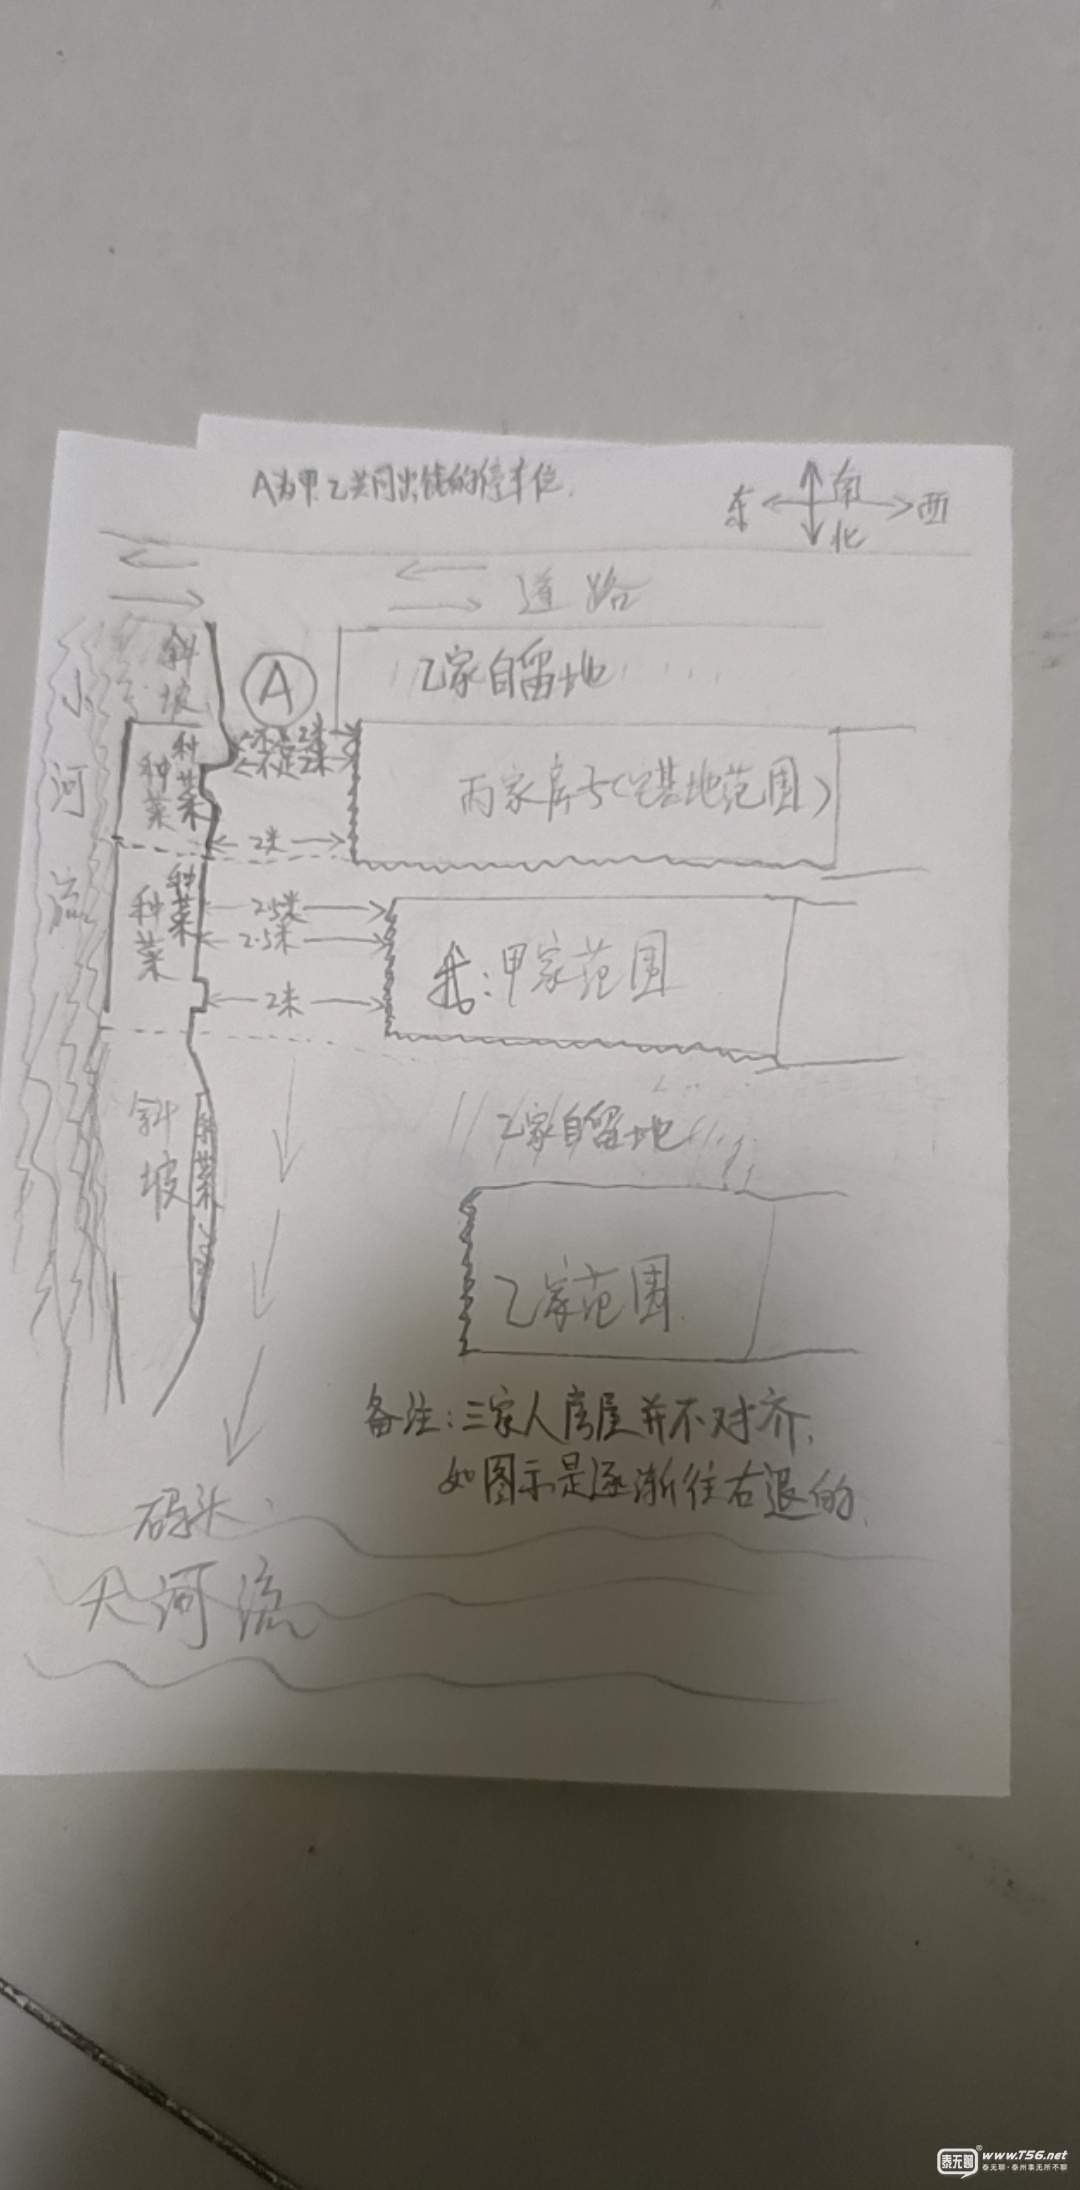 A为甲.乙共同出钱的停车位.
南
东
西
北
道路
斜坡
小河流
A
乙家自留地
种菜
种菜
不足2米
不足2米
丙家房子(宅基地范围)
2米
种菜
种菜
2.5米
2.5米
我:甲家范围
2米
乙家自留地
斜坡
种菜
乙家范围
备注:三家人房屋并不对齐,
如图示是逐渐往右退的.
码头
大河流
泰无聊
www.T56.net
泰无聊·泰州事无所不聊